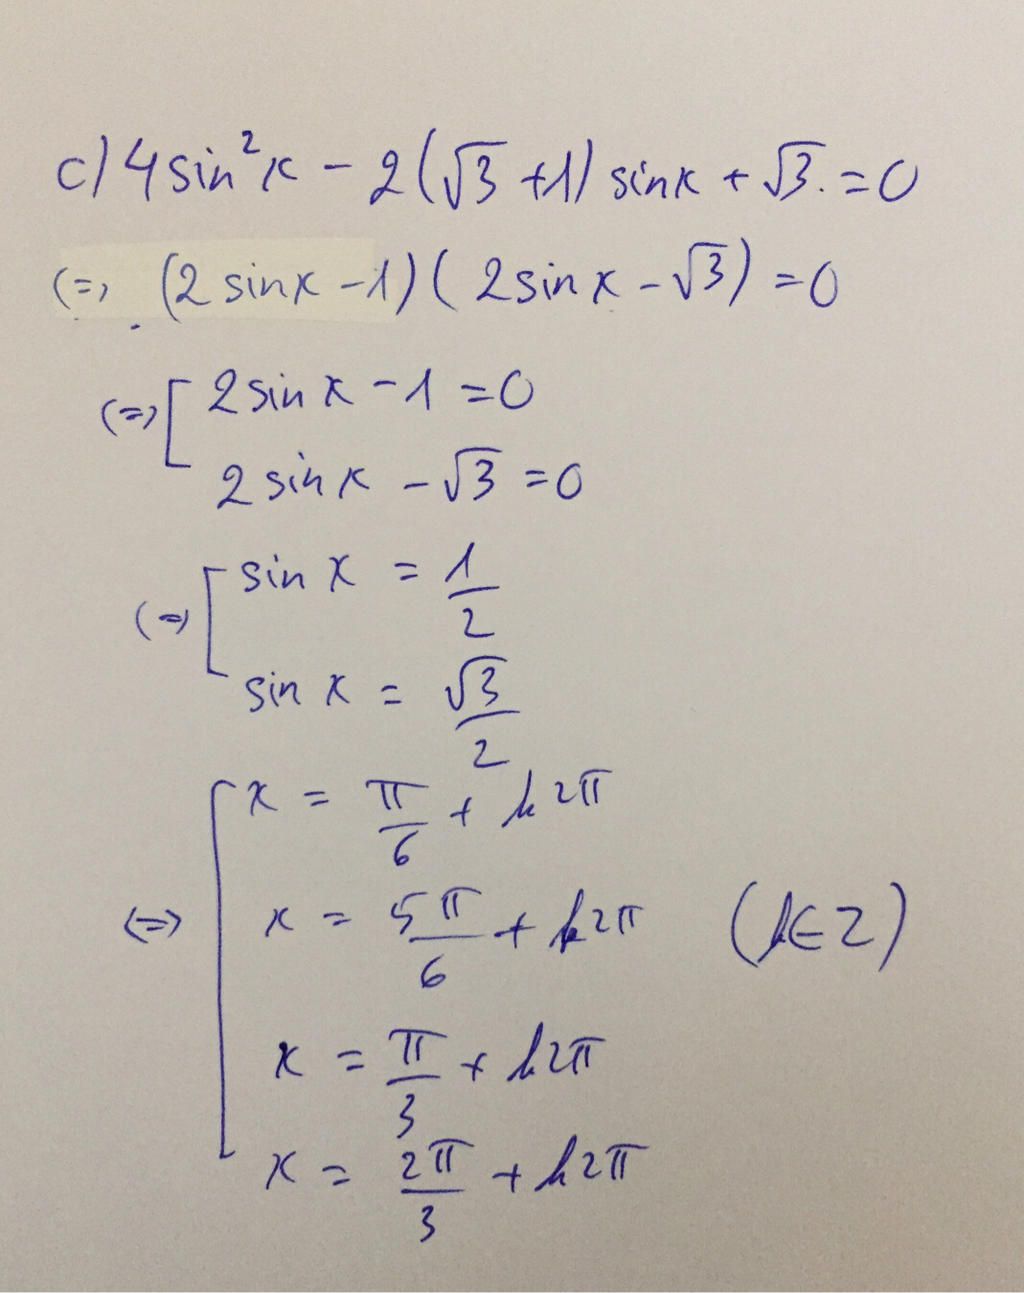 c) 4sin²x - 2(√3 +1) sinx + √3. = 0
(=) (2 sinx - 1)(2sinx - √3) = 0
(=) [ 2sinx - 1 = 0
2sinx - √3 = 0
(=) [ sinx = 1/2
sinx = √3/2
(=) [ x = π/6 + k2π
x = 5π/6 + k2π (k∈Z)
x = π/3 + k2π
x = 2π/3 + k2π